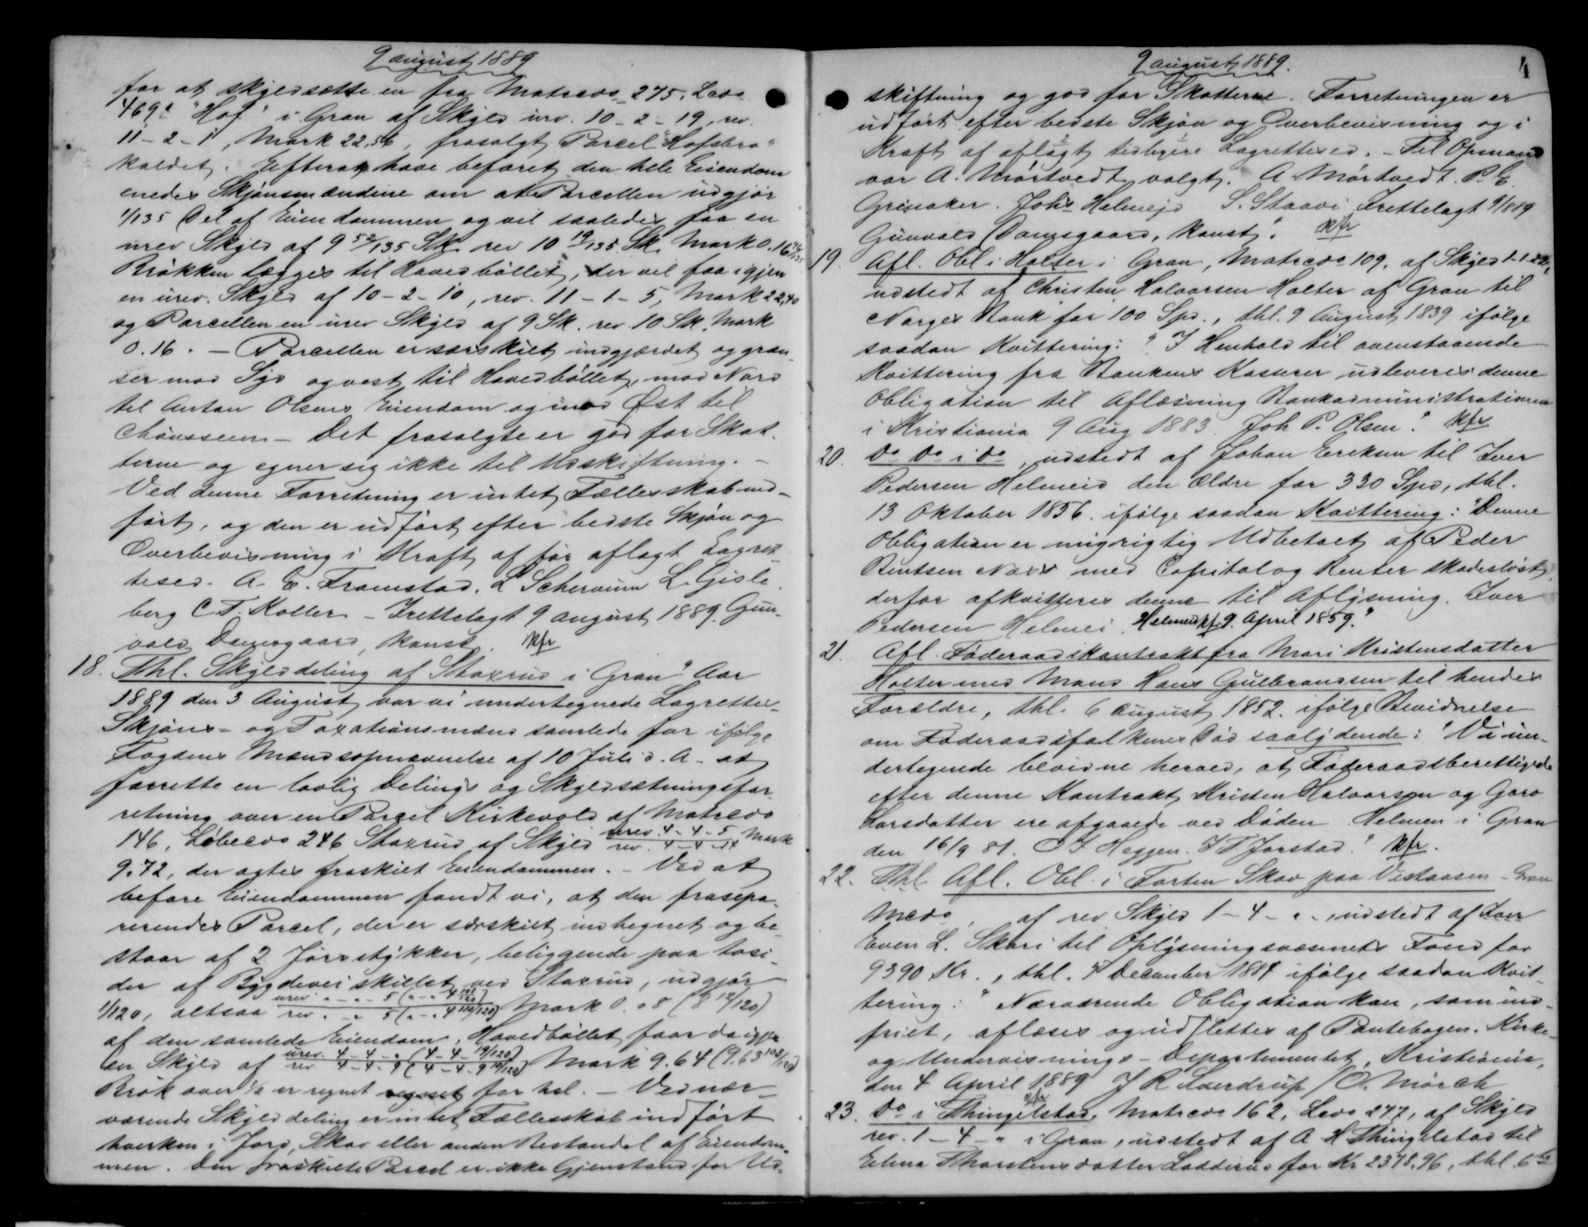 9 august 1889
for at skyldsætte en fra Matrno 275, Lno
469c "Hof" i Gran af Skyld urv. 10-2-19, rev.
11-2-1, Mark 22,56, frasolgt Parcel "Hofsbro"
kaldet. Efter at have befaret den hele Eiendom
enedes Skjønsmændene om at Parcellen udgjør
1/135 Del af Eiendommen og vil saaledes faa en
urev Skyld af 9 52/135 Sk. rev 10 19/135 Sk. Mark 0.16
Brøkken lægges til Hovedbøllet, der vil faa igjen
en urev. Skyld af 10-2-10, rev. 11-1-5, Mark 22,40
og Parcellen en urev Skyld af 9 Sk. rev 10 Sk. Mark
0.16. — Parcellen er særskilt indgjærdet og græn-
ser mod Syd og vest til Hovedbøllet, mod Nord
til Anton Olsens Eiendom og mod Øst til
Chausseen. — Det frasolgte er god for Skat-
terne og egner sig ikke til Udskiftning. —
Ved denne Forretning er intet Fællesskab ind-
ført, og den er udført efter bedste Skjøn og
Overbevisning i Kraft af før aflagt Lagret-
tesed. A. E. Framstad. L Schervum L. Gisle
berg C. F. Koller — Irettelagt 9 august 1889. Gun-
vald Damsgaard, konst. Kfr
18. Thl. Skylddeling af Staxrud i Gran "Aar
1889 den 3 August var vi undertegnede Lagrettes-
Skjøns- og Taxationsmænd samlede for ifølge
Fogdens Mandsopnævnelse af 10 Juli d. A. at
forrette en lovlig Delings og Skyldsætningsfor-
retning over en Parcel Kirkevold af Matrno
146, Løbeno 246 Staxrud af Skyld urev. 4-4-5 rev. 4-4-14 Mark
9.72, der agtes fraskilt Eiendommen. — Ved at
befare Eiendommen fandt vi, at den frasepa-
rerendes Parcel, der er særskilt indhegnet og be-
staar af 2 Jordstykker, beliggende paa tosi-
der af Bygdeveiskillet ved Staxrud, udgjør
1/120, altsaa Mark 0.08 (8 12/120)
af den samlede Eiendom. Hovedbøllet faar da igjen
en Skyld af Mark 9.64 (9.63 108/120)
Brøk over ½ er regnet for hel. — Ved nær-
værende Skylddeling er intet Fællesskab indført
hverken i Jord, Skov eller anden Bestandel af Eiendom-
men. Den fraskilte Parcel er ikke Gjenstand for Ud-
9 august 1889.
4
skiftning og god for Skatterne. Forretningen er
udført efter bedste Skjøn og Overbevisning og i
Kraft af aflagt tidligere Lagrettesed. — Til Opmand
var A. Mörtvedt valgt. A Mörtvedt. P. E.
Grinaker. Johs Helmejd S. Staavi Irettelagt 9/8 89
Gunvald Damsgaard, konst". Kfr
19. Afl. Obl i Holter i Gran, Matrno 109, af Skyld
udstedt af Christen Halvorsen Holter af Gran til
Norges Bank for 100 Spd., thl. 9 August 1839 ifølge
saadan Kvittering: "I Henhold til ovenstaaende
Kvittering fra Bankens Kasserer udleveres denne
Obligation til Aflæsning Bankadministrationen
i Kristiania 9 Aug 1883. Joh P. Olsen". Kfr
20. Do Do i do, udstedt af Johan Eriksen til Iver
Pedersen Helmeid den Ældre for 330 Spd, thl.
13 Oktober 1856. ifølge saadan Kvittering: "Denne
Obligation er mig rigtig Udbetalt af Peder
Bentsen med Capital og Renter skadesløst,
derfor afkvitteres denne til Aflysning. Iver
Pedersen Helmei. Helmeid 9. April 1859."
21. Afl. Føderaadskontrakt fra Mari Kristensdatter
Holter med Mand Hans Gulbrandsen til hendes
Forældre, thl. 6 August 1852. ifølge Bevidnelse
om Føderaadsfolkenes Død saalydende: "Vi un-
dertegnede bevidne herved, at Føderaadsberettigede
efter denne Kontrakt Kristen Halvorsen og Goro
Larsdatter ere afgaaede ved Døden Helmen i Gran
den 16/9 81. O I Heggen. T T Jorstad." Kfr.
22. Thl. Afl. Obl. i Torten Skov paa Vestaasen — Gran
Mno, af rev Skyld 1-4-", udstedt af
Even L. Skari til Oplysningsvæsenets Fond for
9390 Kr., thl. 4 December 1884 ifølge saadan Kvit-
tering: "Nærværende Obligation kan, som ind-
friet, aflæses og udslettes af Pantebogen. Kirke-
og Undervisnings-Departementet, Kristiania,
den 4 April 1889 J R Sverdrup / O. Mørch
23. Do i Thingelstad, Matrno 162, Lno 277, af Skyld
rev. 1-4-" i Gran, udstedt af A. H Thingelstad til
Eline Thorstensdatter Lodderud for Kr 2378.96, thl. 6te